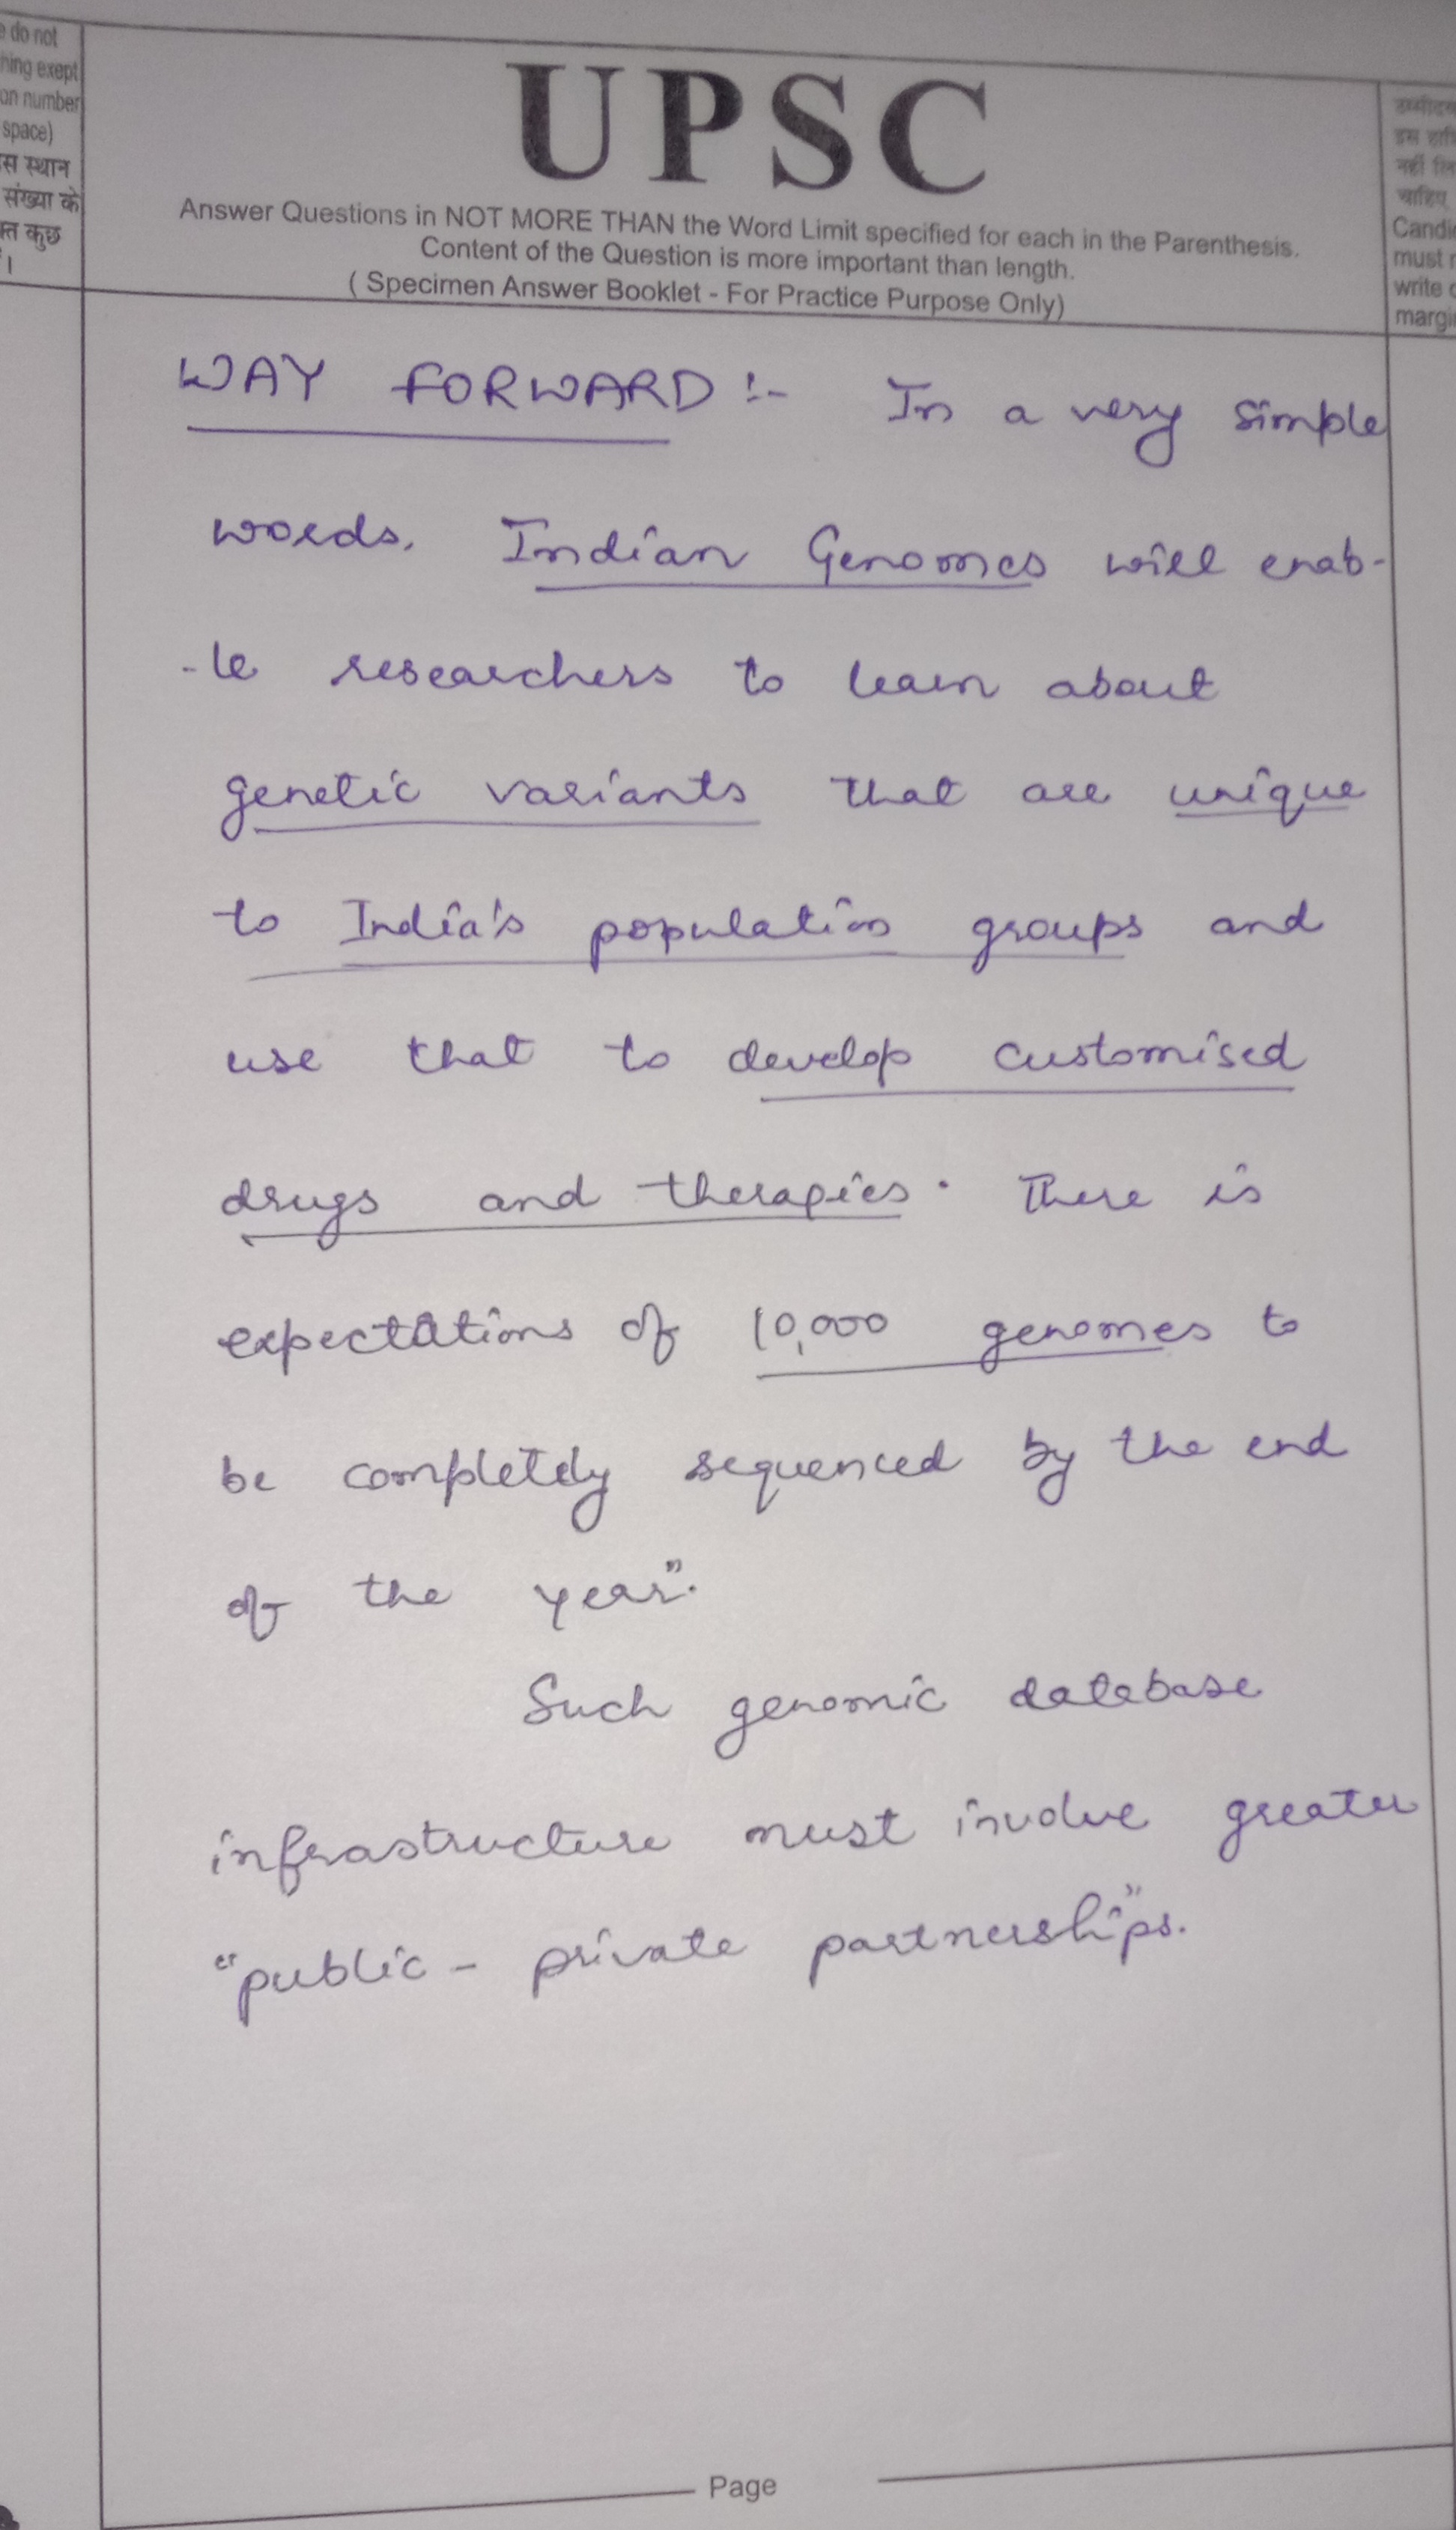 e do not
hing exept
on number
space)
स स्थान
संख्या के
त कुछ
।
UPSC
Answer Questions in NOT MORE THAN the Word Limit specified for each in the Parenthesis.
Content of the Question is more important than length.
( Specimen Answer Booklet - For Practice Purpose Only)
नहीं
चाहिए
Candi
must
write
margi
WAY FORWARD :- In a very simple
words, Indian Genomes will enab-
-le researchers to learn about
genetic variants that are unique
to India's population groups and
use that to develop customised
drugs and therapies. There is
expectations of 10,000 genomes to
be completely sequenced by the end
of the year".
Such genomic database
infrastructure must involve greater
"public - private partnerships".
Page